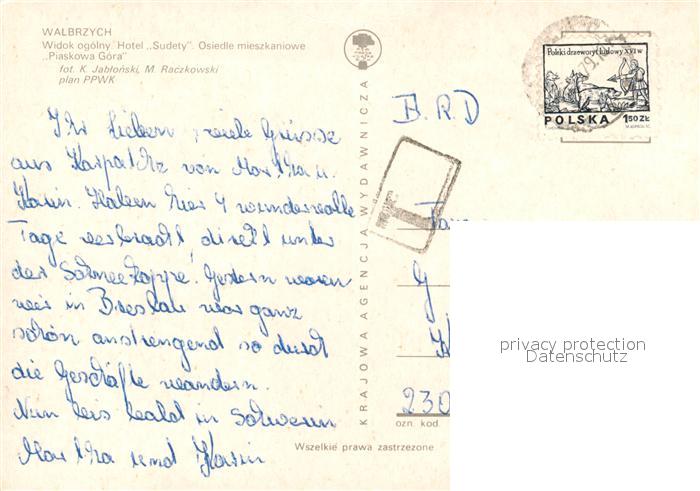 WAŁBRZYCH
Widok ogólny. Hotel „Sudety". Osiedle mieszkaniowe
„Piaskowa Góra"
fot. K. Jabłoński, M. Raczkowski
plan PPWK
Ihr Lieben, viele Grüsse
aus Karpatcz von Martha u.
Karin. Haben hier 4 wundervolle
Tage verbracht, direkt unter
der Schneekoppe. Gestern waren
wir in Breslau war ganz
schön anstrengend so durch
die Geschäfte wandern.
Nun bis bald in Schwerin
Martha und Karin
KRAJOWA AGENCJA WYDAWNICZA
B.R.D
Polski drzeworyt ludowy XVI w
POLSKA 1.50 ZŁ
T
Fam
G
230
ozn. kod.
Wszelkie prawa zastrzeżone
privacy protection
Datenschutz